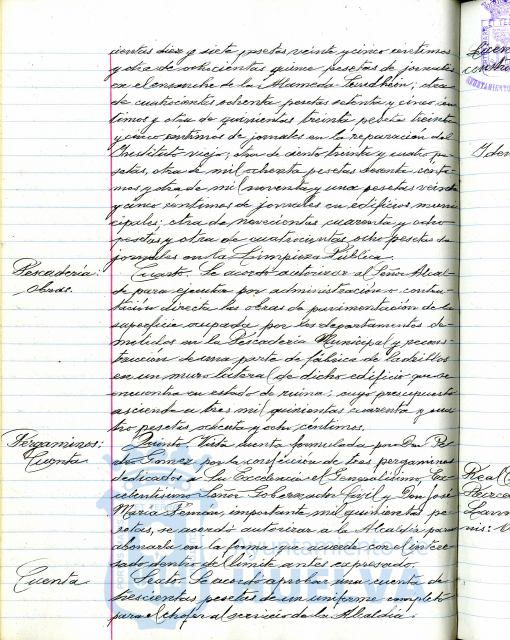 cientas diez y siete pesetas veinte y cinco céntimos
y otra de ochocientas quince pesetas de jornales
en el ensanche de la Alameda Sundheim; otra
de cuatrocientas ochenta pesetas setenta y cinco cén-
timos y otra de quinientas treinta pesetas treinta
y cinco céntimos de jornales en la reparación del
Instituto viejo; otra de ciento treinta y cuatro pe-
setas, otra de mil ochenta pesetas sesenta cénti-
mos y otra de mil noventa y una pesetas veinte
y cinco céntimos de jornales en edificios muni-
cipales; otra de novecientas cuarenta y ocho
pesetas y otra de cuatrocientas ocho pesetas de
jornales en la Limpieza Pública.
Pescadería:
obras.
Cuarto. Se acordó autorizar al Señor Alcal-
de para ejecutar por administración o contra-
tación directa las obras de pavimentación de la
superficie ocupada por los departamentos de-
molidos en la Pescadería Municipal y recons-
trucción de una parte de fábrica de ladrillos
en un muro lateral de dicho edificio que se
encuentra en estado de ruina; cuyo presupuesto
asciende a tres mil quinientas cuarenta y cua-
tro pesetas ochenta y ocho céntimos.
Pergaminos:
Cuenta
Quinto. Vista cuenta formulada por Don Pe-
dro Gomez por la confección de tres pergaminos
dedicados a Su Excelencia el Generalísimo, Ex-
celentísimo Señor Gobernador Civil y Don José
María Pemán, importante mil quinientas pe-
setas, se acordó autorizar a la Alcaldía para
abonarla en la forma que acuerde con el intere-
sado dentro del límite antes expresado.
Cuenta
Sexto. Se acordó aprobar una cuenta de
trescientas pesetas de un uniforme completo
para el chofer al servicio de la Alcaldía.
Ayuntamiento de
Real